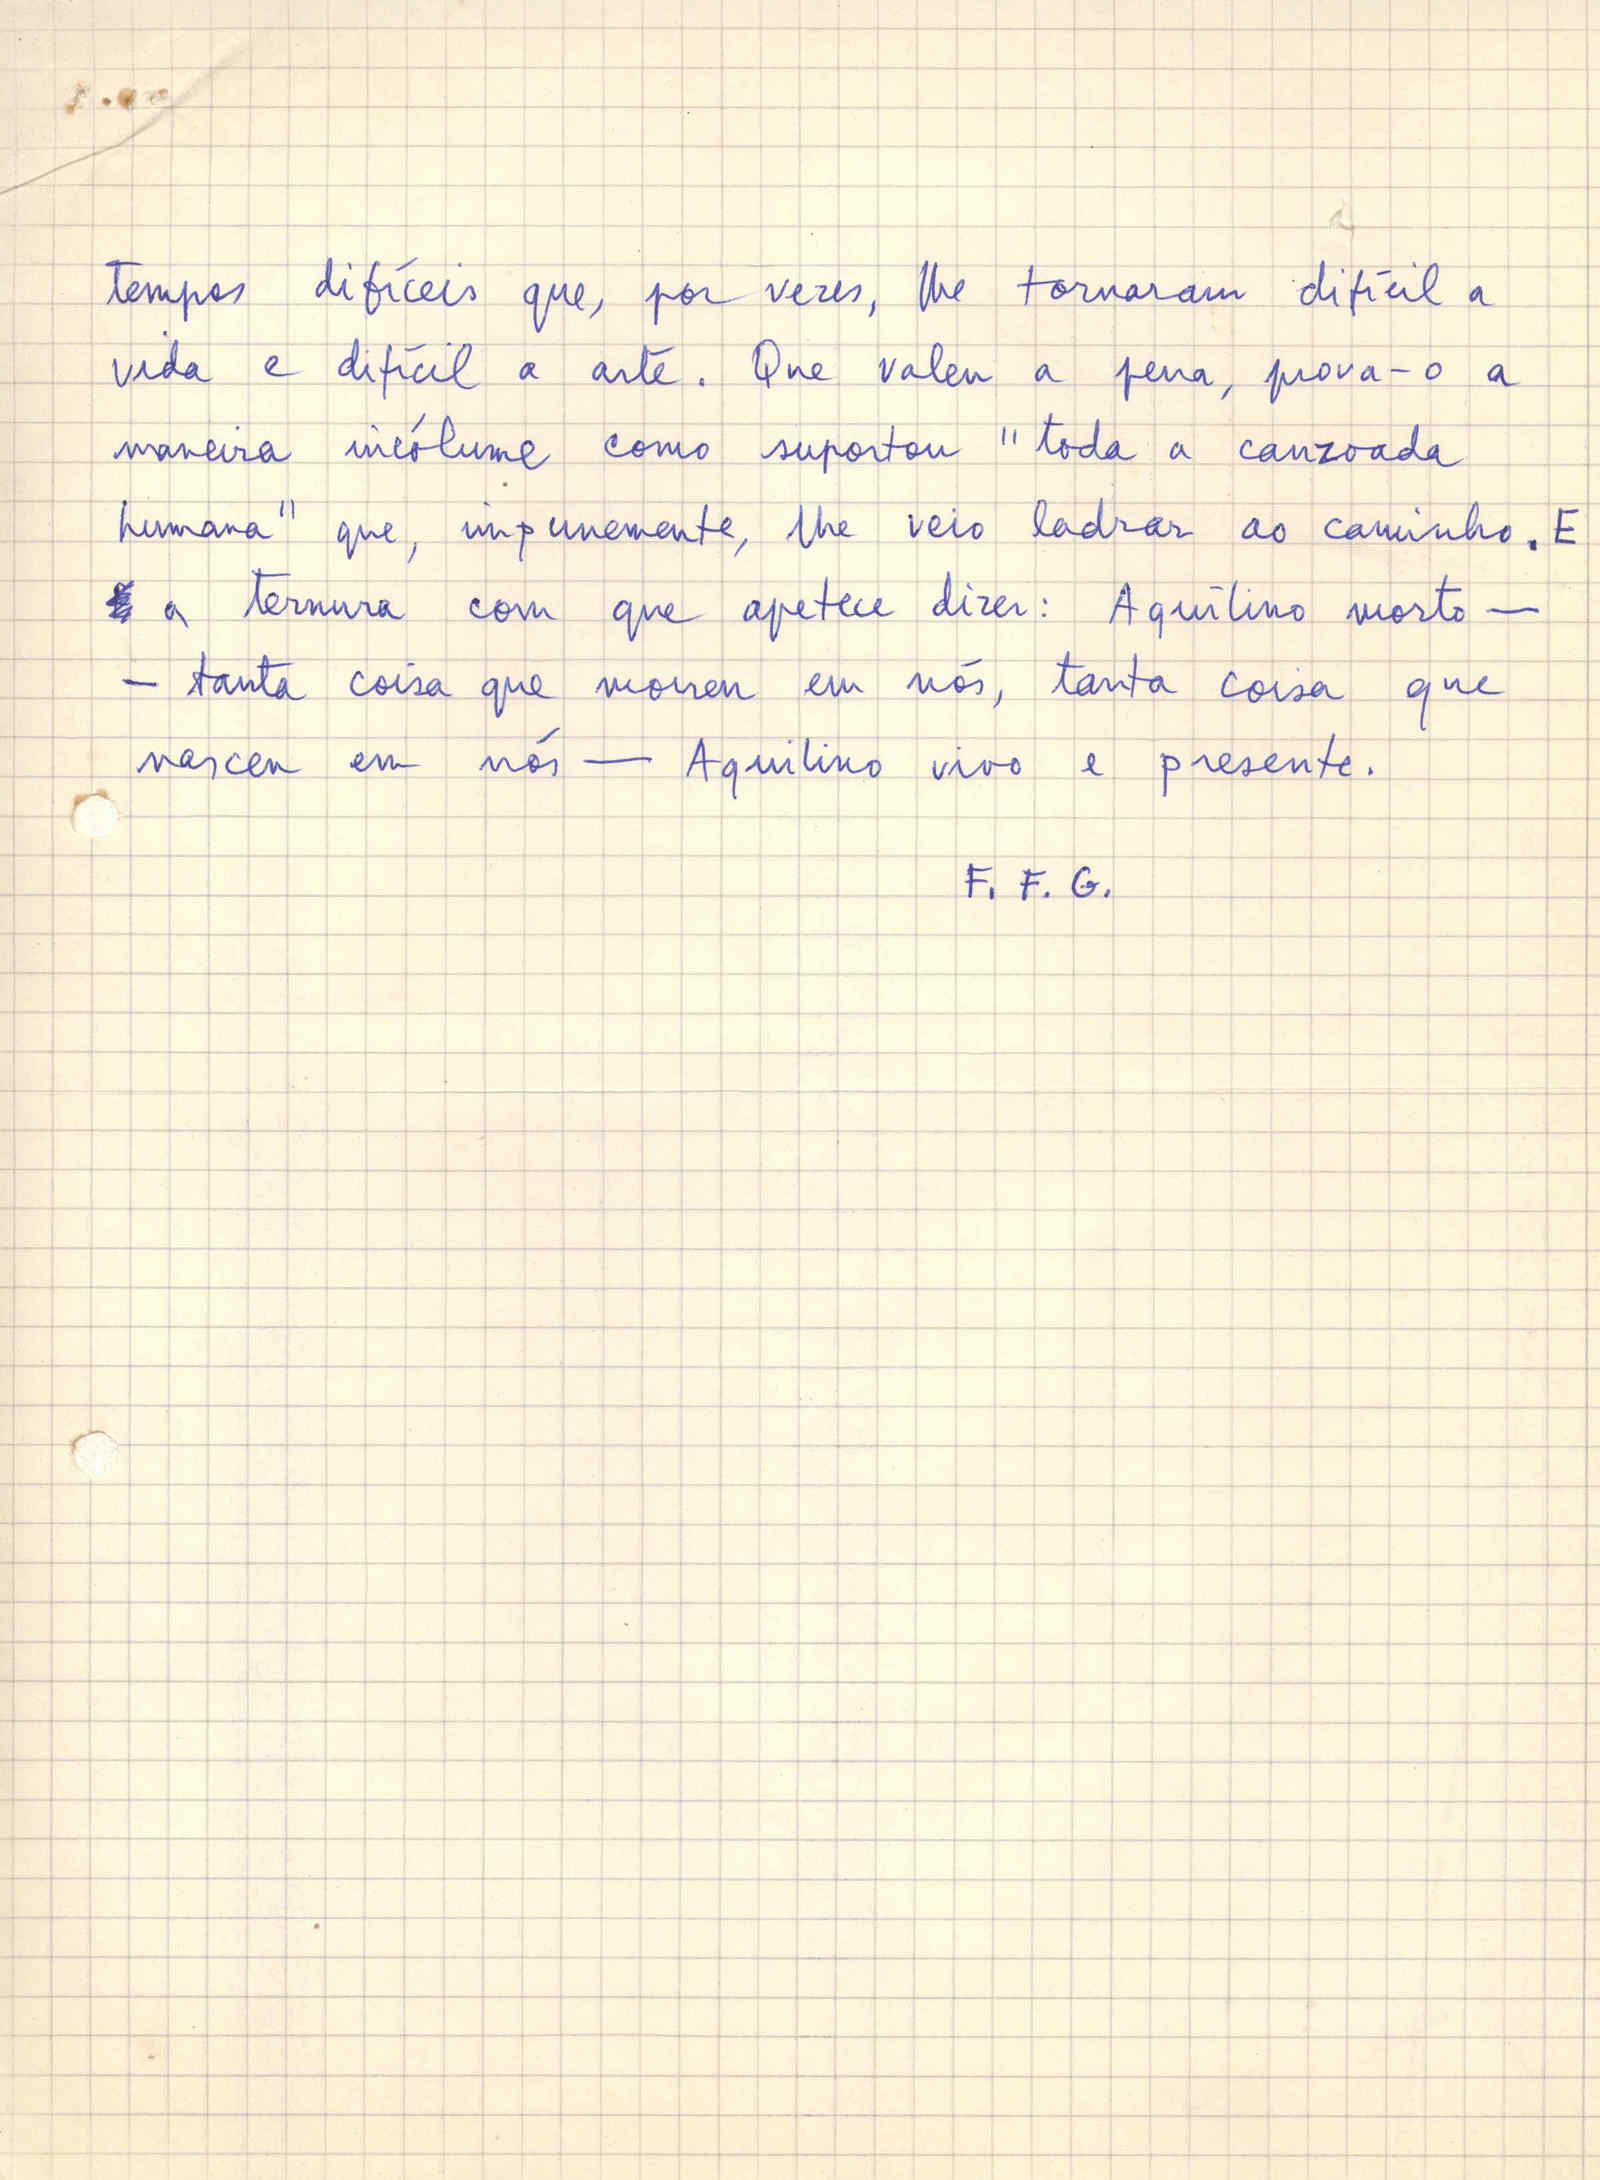 tempos difíceis que, por vezes, lhe tornaram difícil a
vida e difícil a arte. Que valeu a pena, prova-o a
maneira incólume como suportou "toda a canzoada
humana" que, impunemente, lhe veio ladrar ao caminho. E
a ternura com que apetece dizer: Aquilino morto —
— tanta coisa que morreu em nós, tanta coisa que
nasceu em nós — Aquilino vivo e presente.
F. F. G.